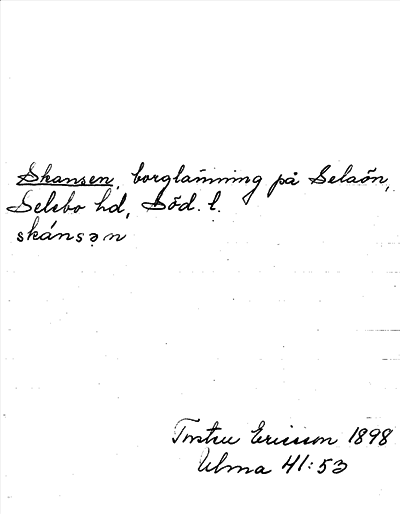 Skansen, borglämning på Selaön,
Selebo hd, Söd. l.
skánsən
Torsten Ericsson 1898
Ulma 41:53